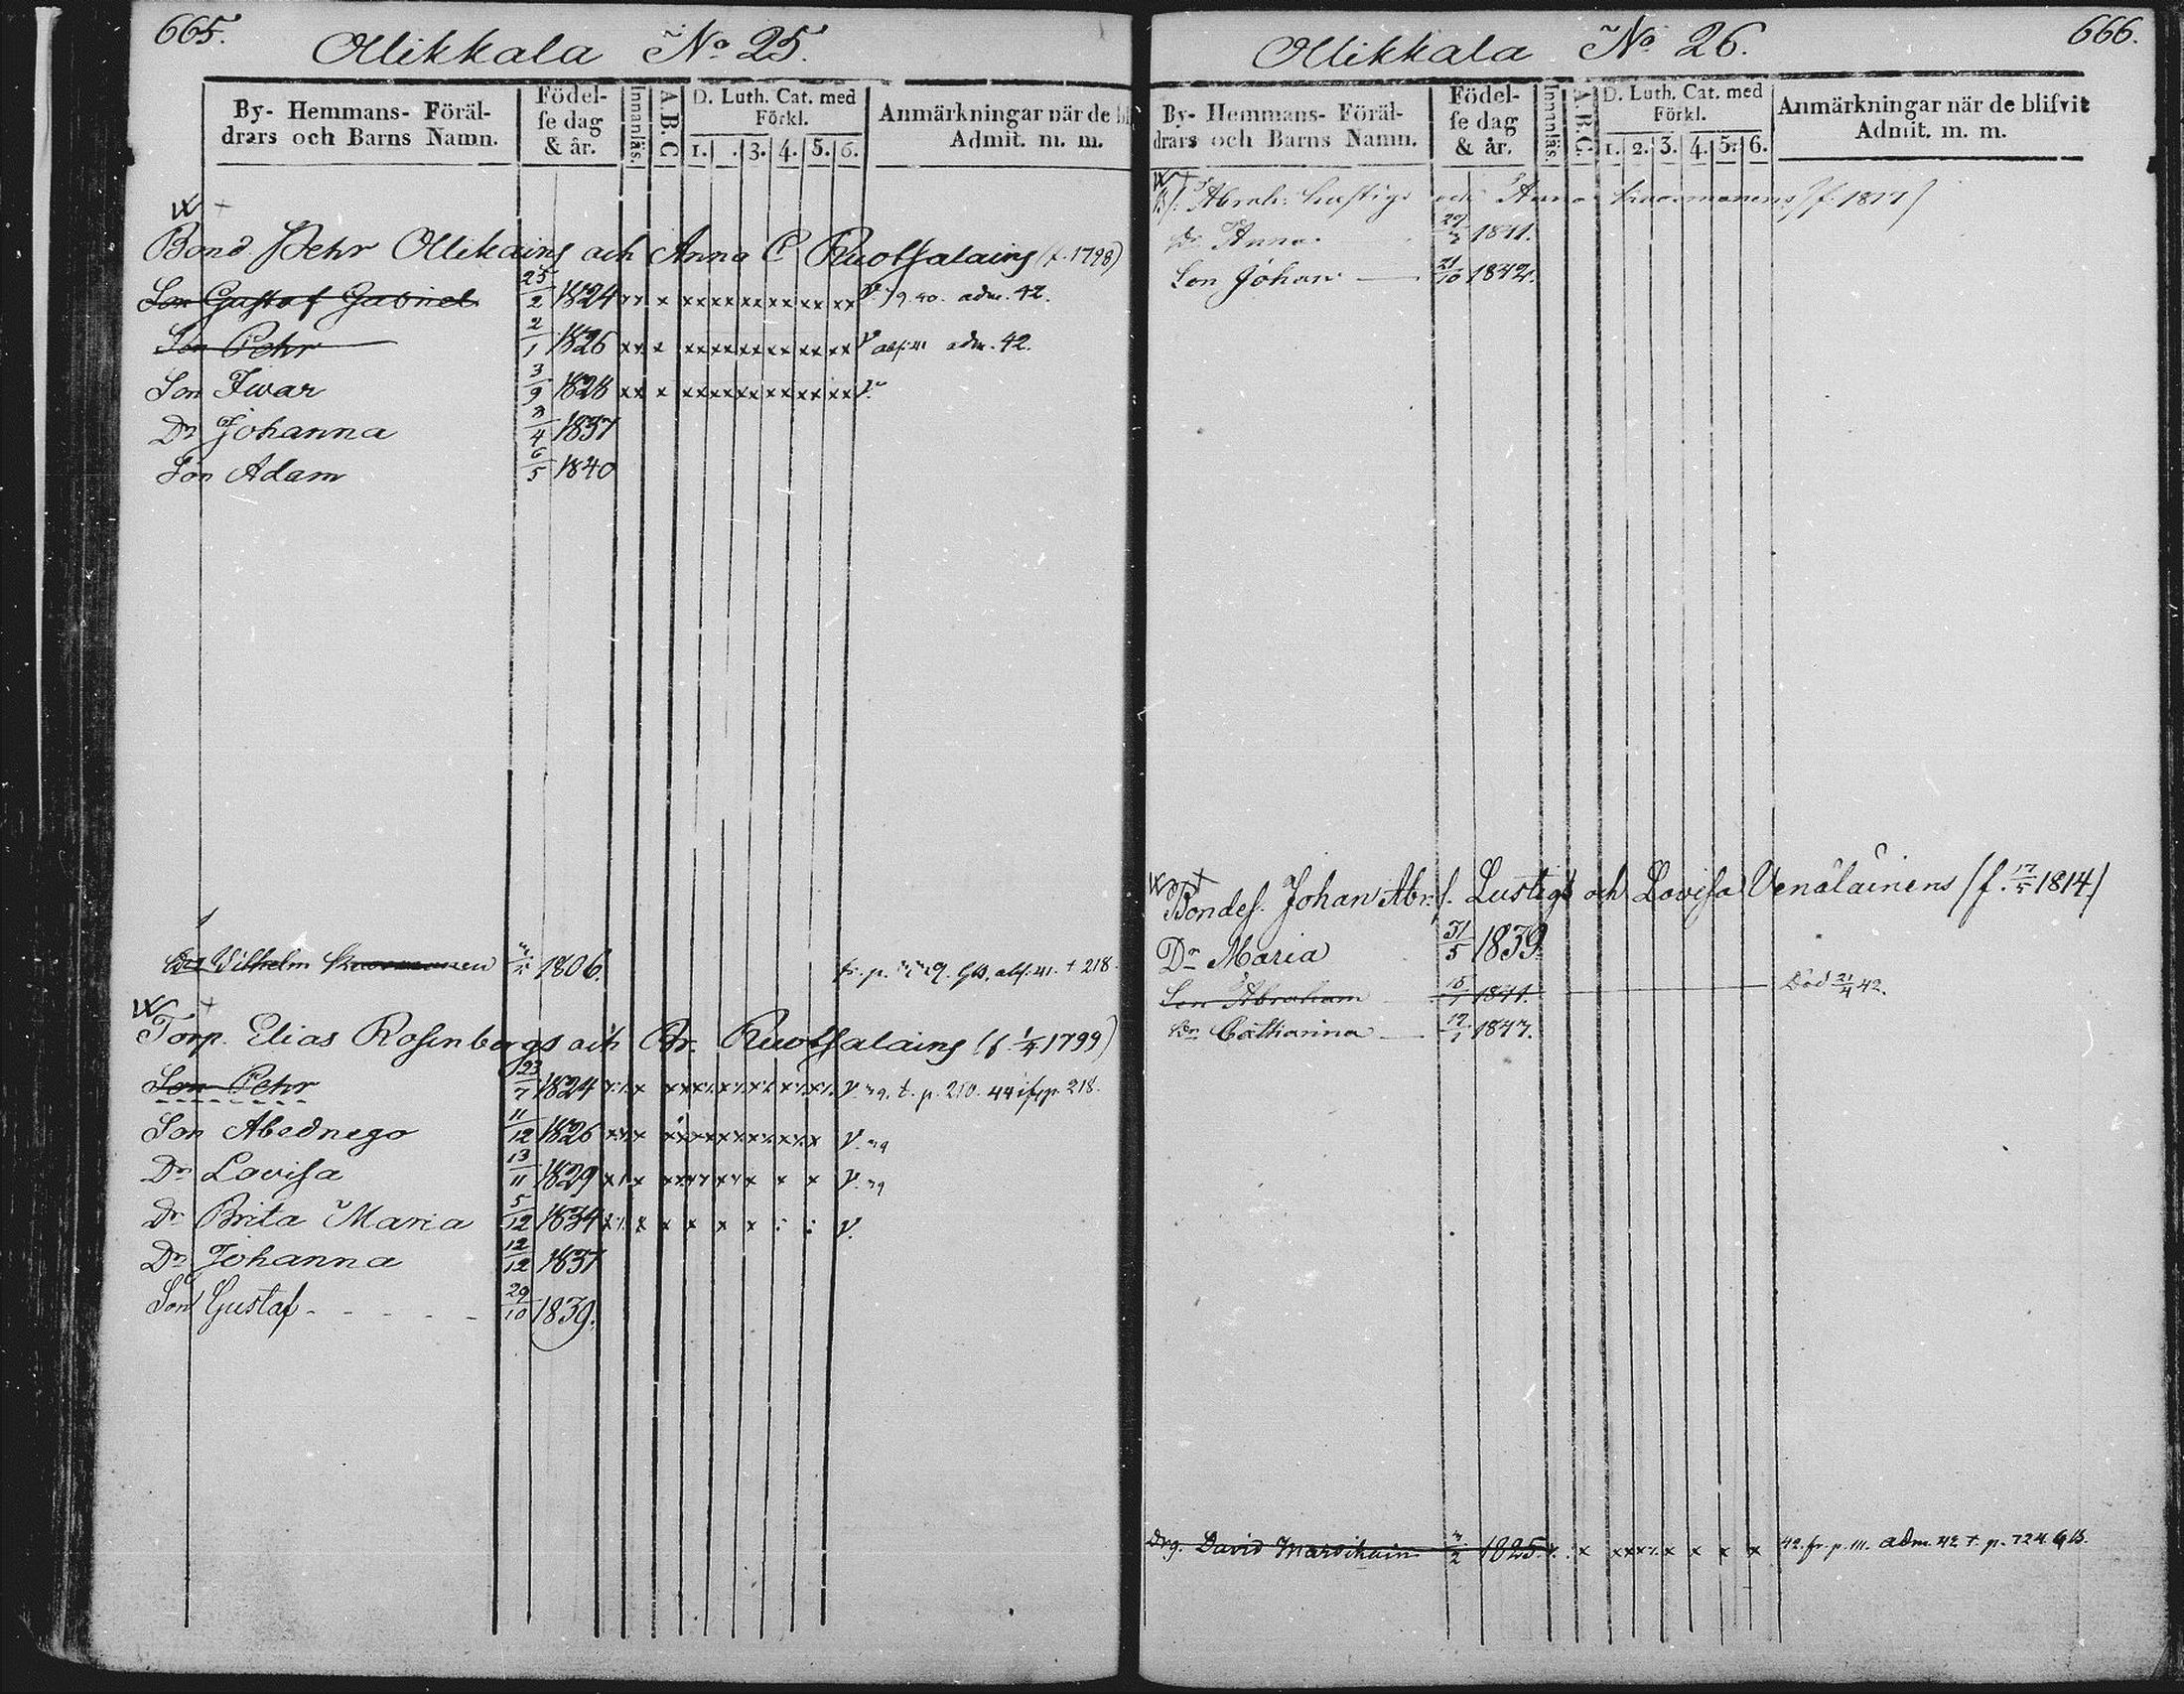 665.
Ollikkala No 25.
By- Hemmans- Föräl-
drars och Barns Namn.
Födel-
se dag
& år.
Innanläs.
A.B.C
D. Luth. Cat. med
Förkl.
1. . 3. 4. 5. 6.
Anmärkningar när de bl
Admit. m. m.
Bond Pehr Ollikains och Anna C Ruotsalains (f. 1798)
Son Gustaf Gabriel 25/2 1824 xx x xx xx xx xx xx xx adm. 42.
Son Pehr 2/1 1826 xx x xx xx xx xx xx xx adm. 42.
Son Ivar 3/9 1828 xx x xx xx xx xx xx xx
Dr Johanna 3/4 1837
Son Adam 6/5 1840
Wilhelm 1806. + 218
Torp. Elias Rosenbergs och Br. Ruotsalains (f. 1/4 1799)
Son Pehr 23/7 1824 t. p. 210. 218.
Son Abednego 11/12 1826
Dr Lovisa 13/11 1829
Dr Brita Maria 5/12 1834
Dr Johanna 12/12 1837
Son Gustaf 29/10 1839.
666.
Ollikkala No 26.
By- Hemmans- Föräl-
drars och Barns Namn.
Födel-
se dag
& år.
Innanläs.
A.B.C.
D. Luth. Cat. med
Förkl.
1. 2. 3. 4. 5. 6.
Anmärkningar när de blifvit
Admit. m. m.
Abrah. Lustigs och Anna
Dr Anna 1841.
Son Johan 21/10 1842.
Bondes. Johan Abr. s. Lustigs och Lovisa Venäläinens (f. 17/5 1814)
Dr Maria 31/5 1839.
Son Abraham 1841. Död 21/4 42.
Dr Catharina 1847.
Drg. David 1825. x x x x x 42. fr. p. 111. adm. 42 t. p. 724